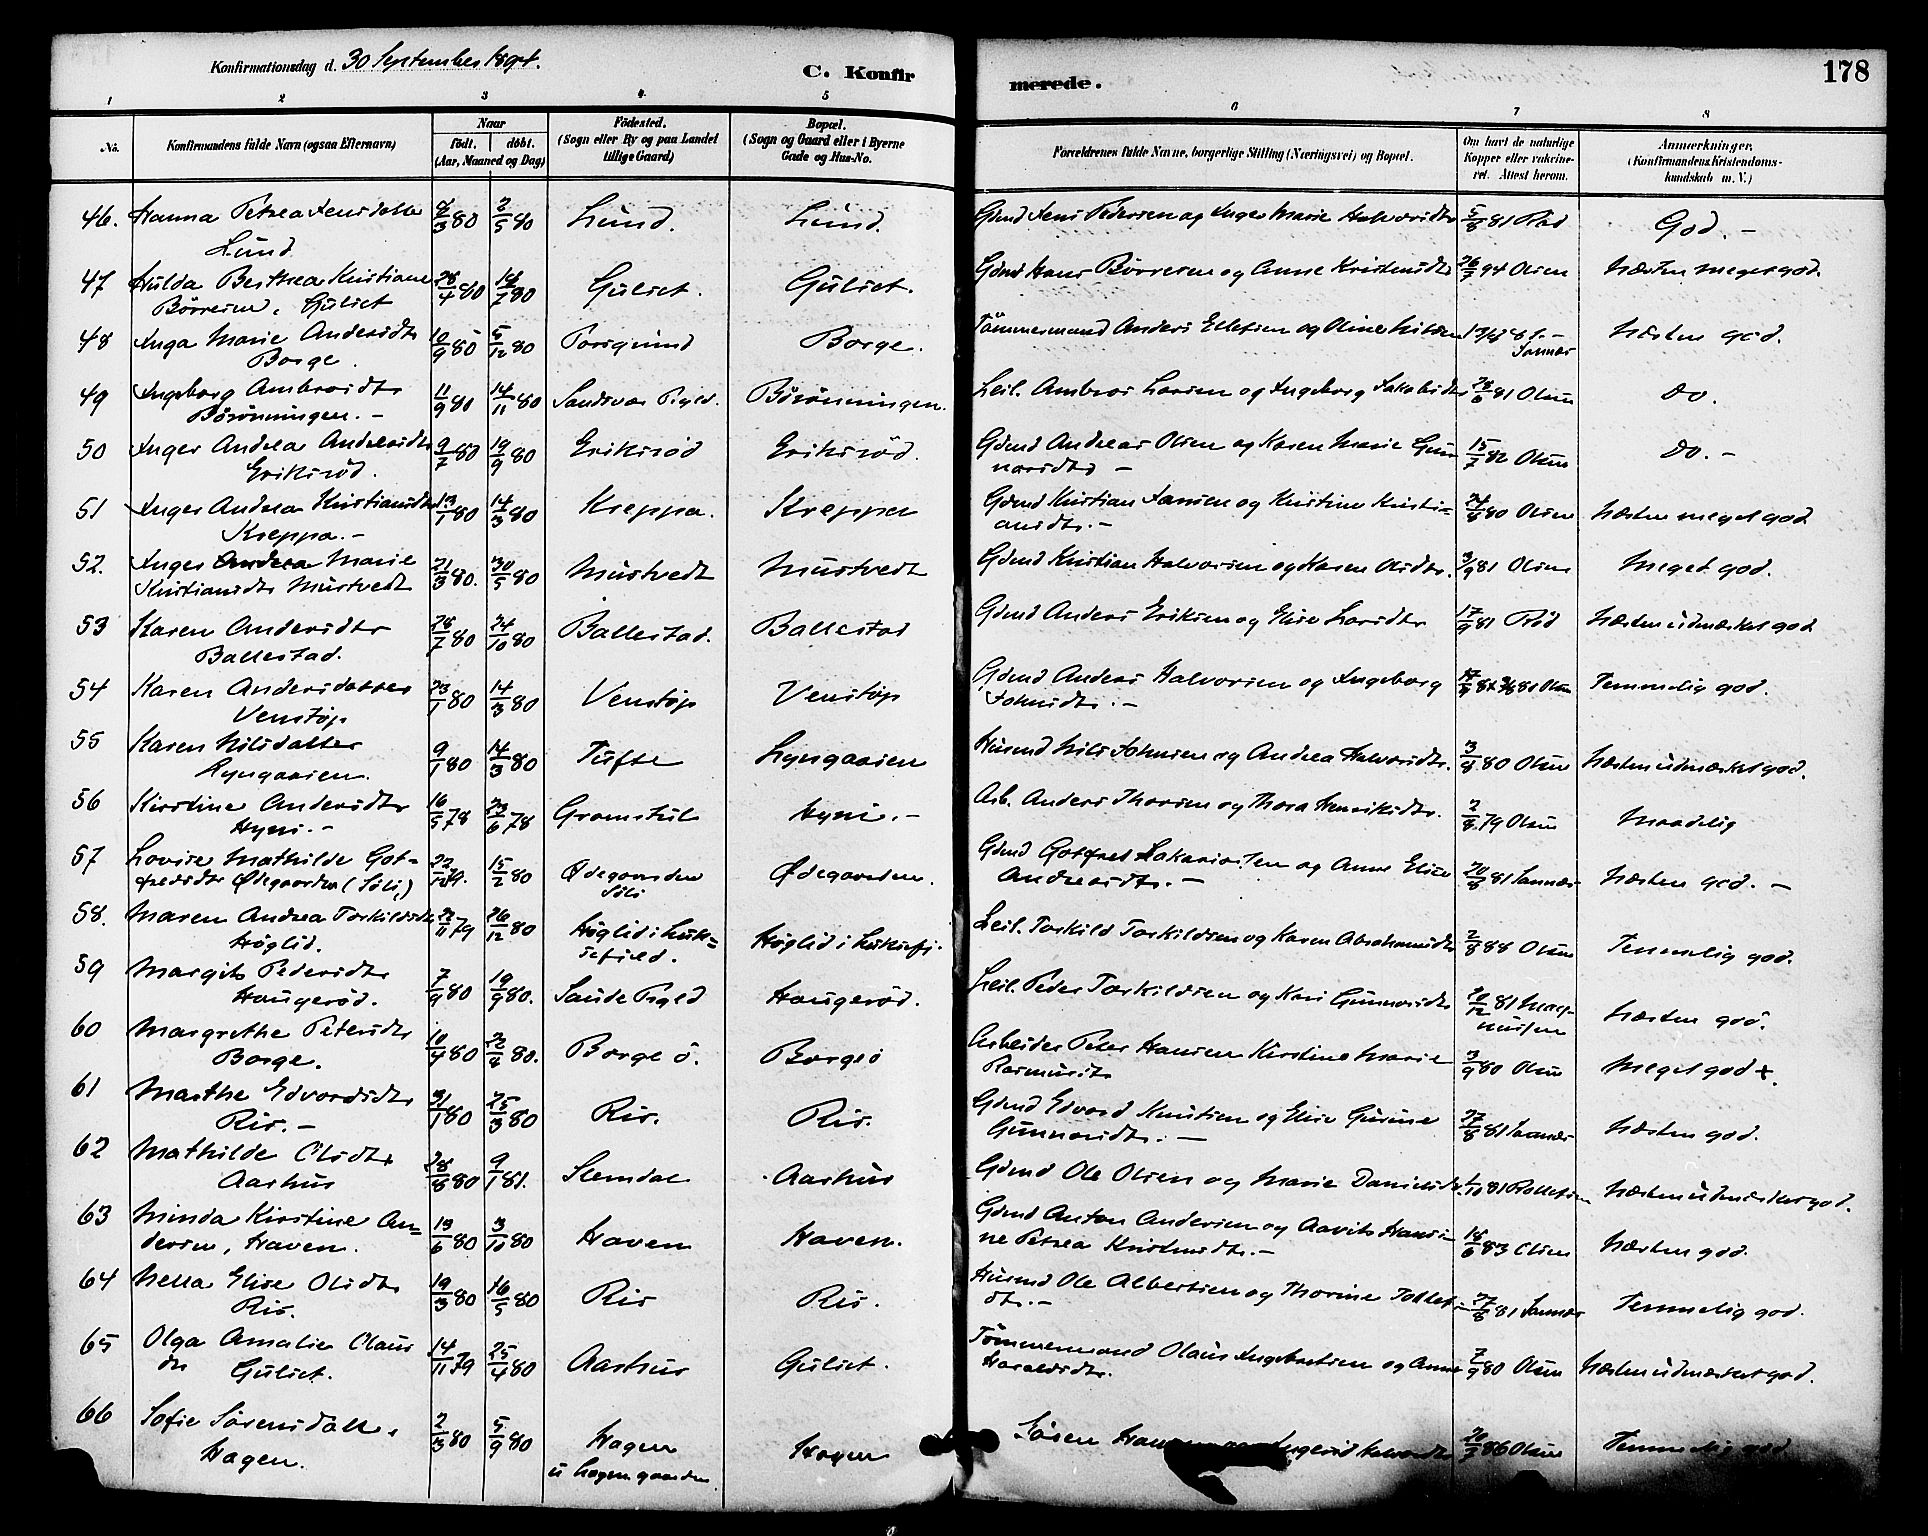 Konfirmationsdag d. 30 September 1894.
C. Konfirmerede.
178
1 2 3 4 5 6 7 8
No.
Konfirmandens fulde Navn (ogsaa Efternavn)
Naar
født. døbt.
(Aar, Maaned og Dag)
Fødested.
(Sogn eller By og paa Landet
tillige Gaard)
Bopæl.
(Sogn og Gaard eller i Byerne
Gade og Hus-No.
Forældrenes fulde Navne, borgerlige Stilling (Næringsvei) og Bopæl.
Om havt de naturlige
Kopper eller vakcine-
ret. Attest herom.
Anmærkninger.
(Konfirmandens Kristendoms-
kundskab m. V.)
46. Hanna Petrea Jensdatter 2/5 80 Lund. Lund. Gdmd Jens Pedersen og Inger Marie Halvorsdtr 5/8 81 Rød God. -
Lund.
47 Hulda Berthea Kristiane 28/4 80 Gulset. Gulset. Gdmd Hans Børresen og Anne Kristensdtr 94 Olsen Næsten meget god.
Børresen, Gulset
48 Inga Marie Andersdtr 10/9 80 5/12 80 Porsgrund Borge. Tømmermand Anders Ellefsen og Oline Næsten god.
Borge.
49 Ingeborg Ambrosdtr 11/9 80 14/11 80 Sandsvær Børønningen. Leil. Ambros Larsen og Ingeborg Jakobsdtr 81 Olsen Do.
Børønningen. -
50 Inger Andrea Andreasdtr 9/7 80 19/9 80 Eriksrød Eriksrød. Gdmd Andreas Olsen og Karen Marie Gun- 15/7 82 Olsen Do. -
Eriksrød. narsdtr -
51 Inger Andrea Kristiansdtr 13/1 80 14/3 80 Kreppa. Kreppa Gdmd Kristian Jansen og Kristine Kristi- 24/8 80 Olsen Næsten meget god
Kreppa. - ansdtr. -
52. Inger Andrea Marie 21/3 80. 30/5 80 Mustvedt Mustvedt Gdmd Kristian Halvorsen og Karen Olsdtr. 3/9 81 Olsen Meget god.
Kristiansdtr Mustvedt
53 Karen Andersdtr 28/7 80 24/10 80 Ballestad. Ballestad Gdmd Anders Eriksen og Elise Larsdtr 17/9 81 Rød Næsten udmærket god
Ballestad.
54 Karen Andersdatter 23/1 80 14/3 80 Venstøp Venstøp Gdmd Anders Halvorsen og Ingeborg Olsen Temmelig god.
Venstøp Johnsdtr. -
55 Karen Nilsdatter 9/1 80 14/3 80 Tufte Lyngaasen Husmd Nils Johnsen og Andrea Halvorsdtr. 3/8 80 Olsen Næsten udmærket god.
Lyngaasen.
56 Kirstine Andersdtr 16/5 78 23/6 78 Gromstul Hyni. - Arb. Anders Thorsen og Thora Henriksdtr. 2/8 79 Olsen Maadelig
Hyni. -
57 Lovise Mathilde Got- 22/12 79. 15/2 80 Ødegaarden Ødegaarden. Gdmd Gotfred Sakariassen og Anne Elise 20/8 81 Næsten god. -
fredsdtr Ødegaarden (Søli) Søli Andreasdtr. -
58. Maren Andrea Torkildsdtr 22/11 79 26/12 80 Høglid i Luk- Høglid i Luksefj. Leil. Torkild Torkildsen og Karen Abrahamsdtr 2/8 88 Olsen Temmelig god.
Høglid. sefjeld.
59 Margit Pedersdtr 7/9 80 19/9 80. Saude Haugerød. Leil. Peder Torkildsen og Kari Gunnarsdtr 20/12 81 Mag- Næsten god.
Haugerød. nussen
60 Margrethe Petersdtr 10/4 80 80. Borge ø. Borge ø Arbeider Peter Hansen Kirstine Marie 3/9 80 Olsen Meget god +.
Borge. Rasmusdtr
61 Marthe Edvardsdtr 31/1 80 25/3 80 Ris. Ris. Gdmd Edvard Knutsen og Elise Gurine 27/8 81 Næsten god.
Ris. - Gunnarsdtr. -
62 Mathilde Olsdtr 28/8 80 9/1 81. Slemdal Aarhus Gdmd Ole Olsen og Marie Danielsdtr. 81 Rollefsen Næsten udmærket god.
Aarhus
63 Minda Kirstine An- 13/6 80 3/10 80 Haven Haven. Gdmd Anton Andersen og Aavits Hansi- 18/6 83 Olsen Næsten god.
dersen, Haven. ne Petrea Kristensdtr. -
64 Nella Elise Olsdtr 19/3 80 16/5 80 Ris Ris. Husmd Ole Albertsen og Thorine Tollefs- 27/8 81 Temmelig god.
Ris. dtr. -
65 Olga Amalie Olaus 14/11 79 25/4 80 Aarhus Gulset. Tømmermand Olaus Ingebretsen og Anne 7/9 80 Olsen Næsten udmærket god.
dtr Gulset. Haraldsdtr.
66 Sofie Sørensdatt. 2/3 80 5/9 80 Hagen Hagen Søren Ingerid Halvorsdtr 20/7 86 Olsen Temmelig god.
Hagen. u Lagmgaarden